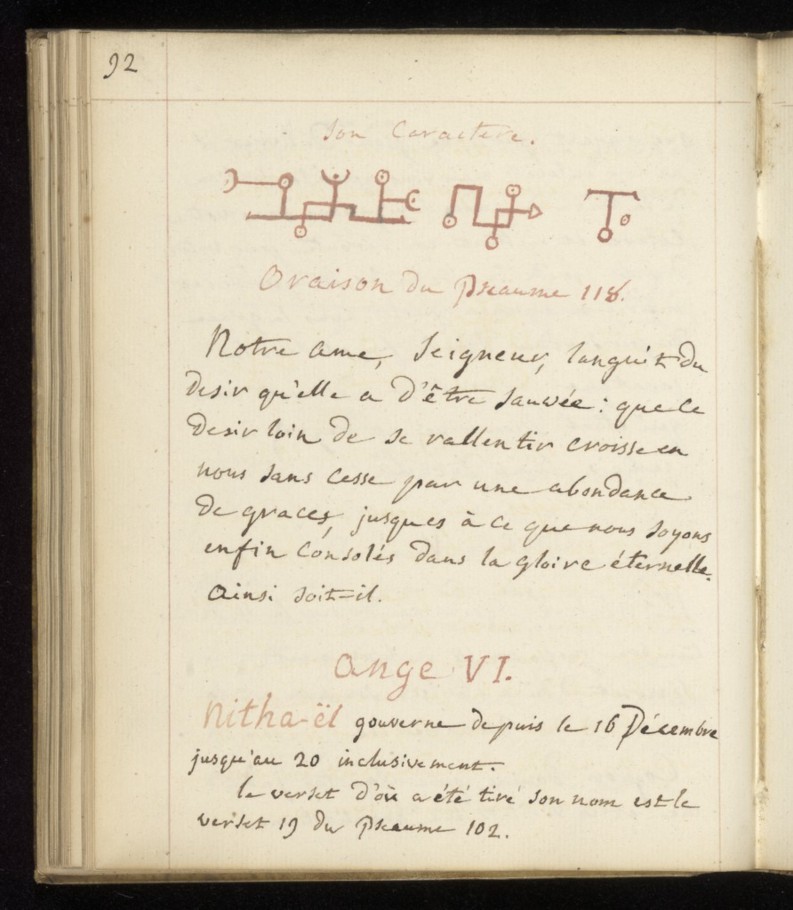 92
Son Caractere.
Oraison du Pseaume 118.
Notre ame, Seigneur, languit du
desir qu'elle a d'être sauvée : que ce
desir loin de se rallentir croisse en
nous sans cesse par une abondance
de graces, jusques à ce que nous soyons
enfin consolés dans la gloire éternelle.
ainsi soit-il.
Ange VI.
Nitha-ël gouverne depuis le 16 Décembre
jusqu'au 20 inclusivement.
le verset d'où a été tiré son nom est le
verset 19 du Pseaume 102.